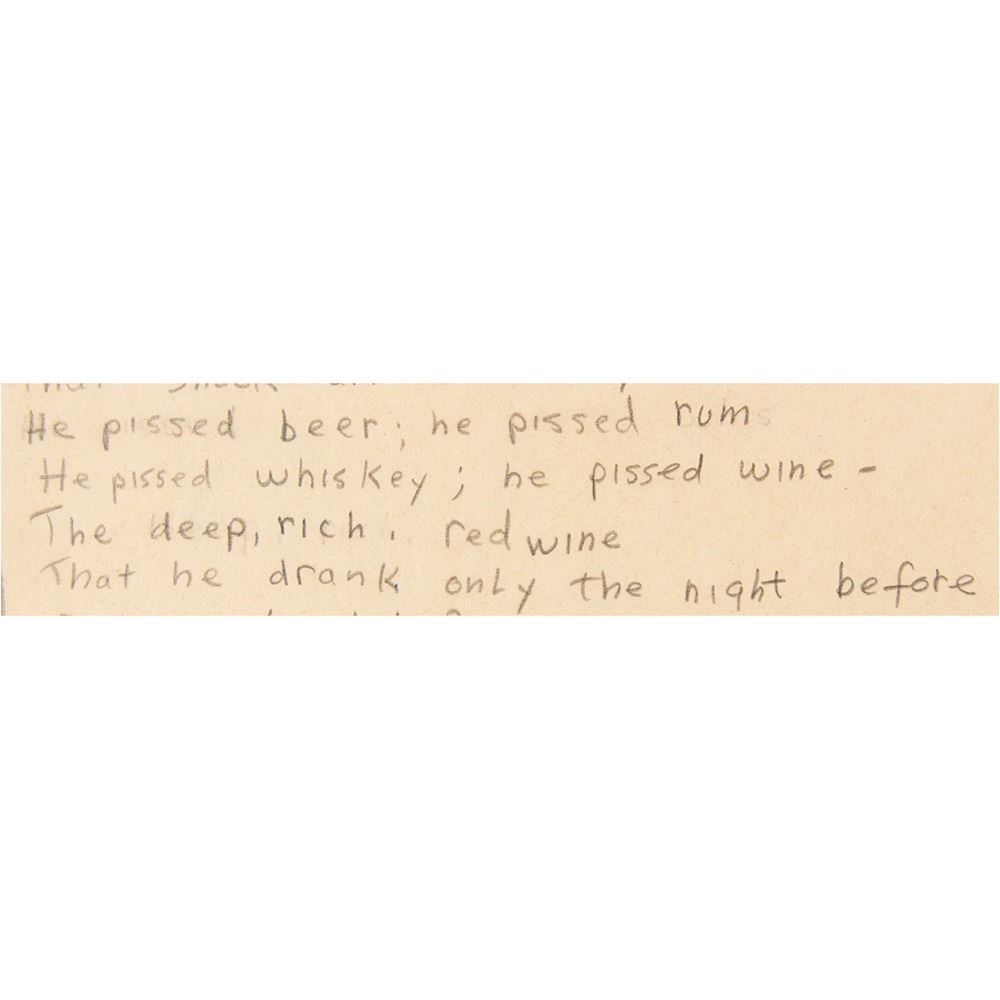 He pissed beer; he pissed rum
He pissed whiskey; he pissed wine -
The deep, rich, red wine
That he drank only the night before